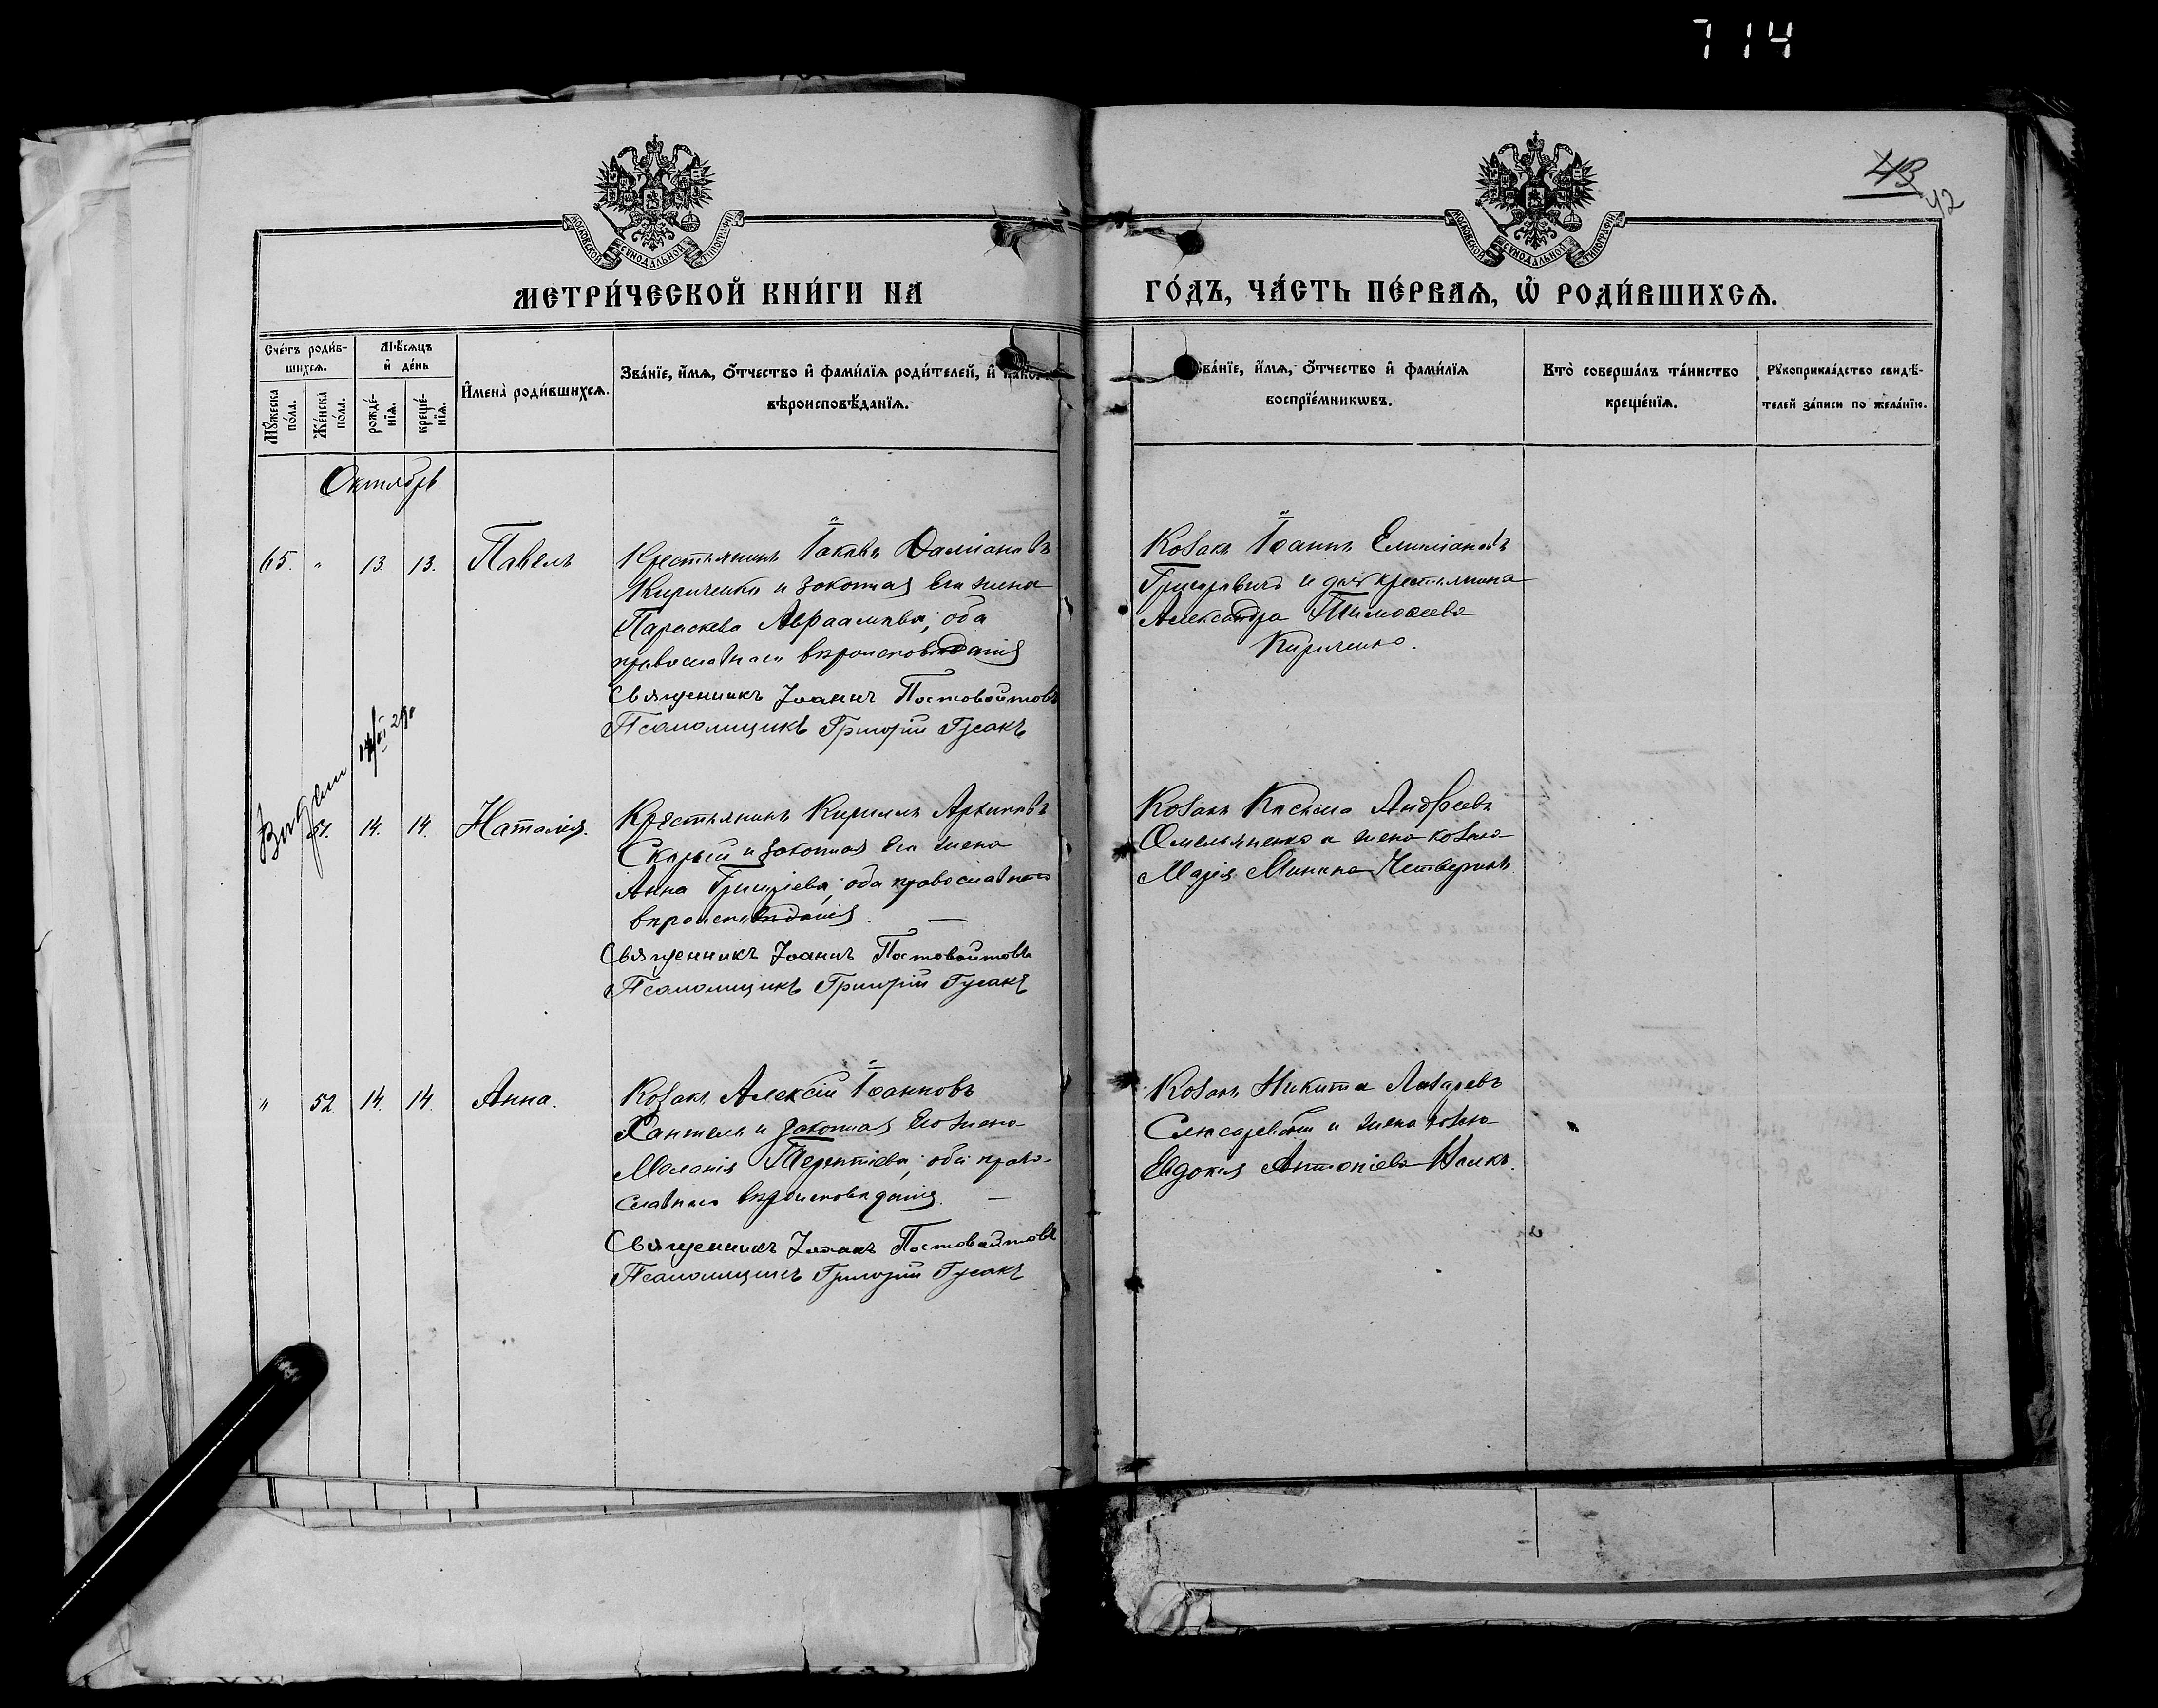 714
43
42
МОСКОВСКОЙ СѴНОДАЛЬНОЙ ТИПОГРАФІИ
МОСКОВСКОЙ СѴНОДАЛЬНОЙ ТИПОГРАФІИ
МЕТРИ́ЧЕСКОЙ КНИ́ГИ НА
ГО́ДЪ, ЧА́СТЬ ПЕ́РВАѦ, Ѡ҆ РОДИ́ВШИХСѦ.
Сче́тъ роди́в-
шихсѧ.
Мѣ́сѧцъ
и҆ де́нь
Мꙋ́жеска
по́ла.
Же́нска
по́ла.
рожде́-
нїѧ.
креще́-
нїѧ.
И҆мена̀ роди́вшихсѧ.
Зва́нїе, и҆́мѧ, ѻ҆́тчество и҆ фами́лїѧ роди́телей, и҆
вѣроисповѣ́данїѧ.
Зва́нїе, и҆́мѧ, ѻ҆́тчество и҆ фами́лїѧ
воспрїе́мникѡвъ.
Кто̀ соверша́лъ та́инство
креще́нїѧ.
Рꙋкоприкла́дство свидѣ́-
телей за́писи по жела́нїю.
Октябрь
65. " 13. 13. Павелъ
Крестьянинъ Іаковъ Даміановъ
Кириченко и законная его жена
Параскева Авраамова, оба
православнаго вѣроисповѣданія
Священникъ Іоаннъ Постовойтовъ
Псаломщикъ Григорій Гусакъ
Козакъ Іоаннъ Емиліановъ
Григоровичъ и дочь крестьянина
Александра Тимофеева
Кириченко.
51. 14. 14. Наталія.
Крестьянинъ Кириллъ
Скорый и законная его жена
Анна Григоріева, оба православнаго
вѣроисповѣданія.
Священникъ Іоаннъ Постовойтовъ
Псаломщикъ Григорій Гусакъ
Козакъ Косьма Андреевъ
Омельяненко и жена козака
Марія Минина Четверикъ.
" 52 14. 14. Анна.
Козакъ Алексій Іоанновъ
и законная его жена
Меланія Терентіева, оба право-
славнаго вѣроисповѣданія.
Священникъ Іоаннъ Постовойтовъ
Псаломщикъ Григорій Гусакъ
Козакъ Никита Лазаревъ
и жена козака
Евдокія Антоніева